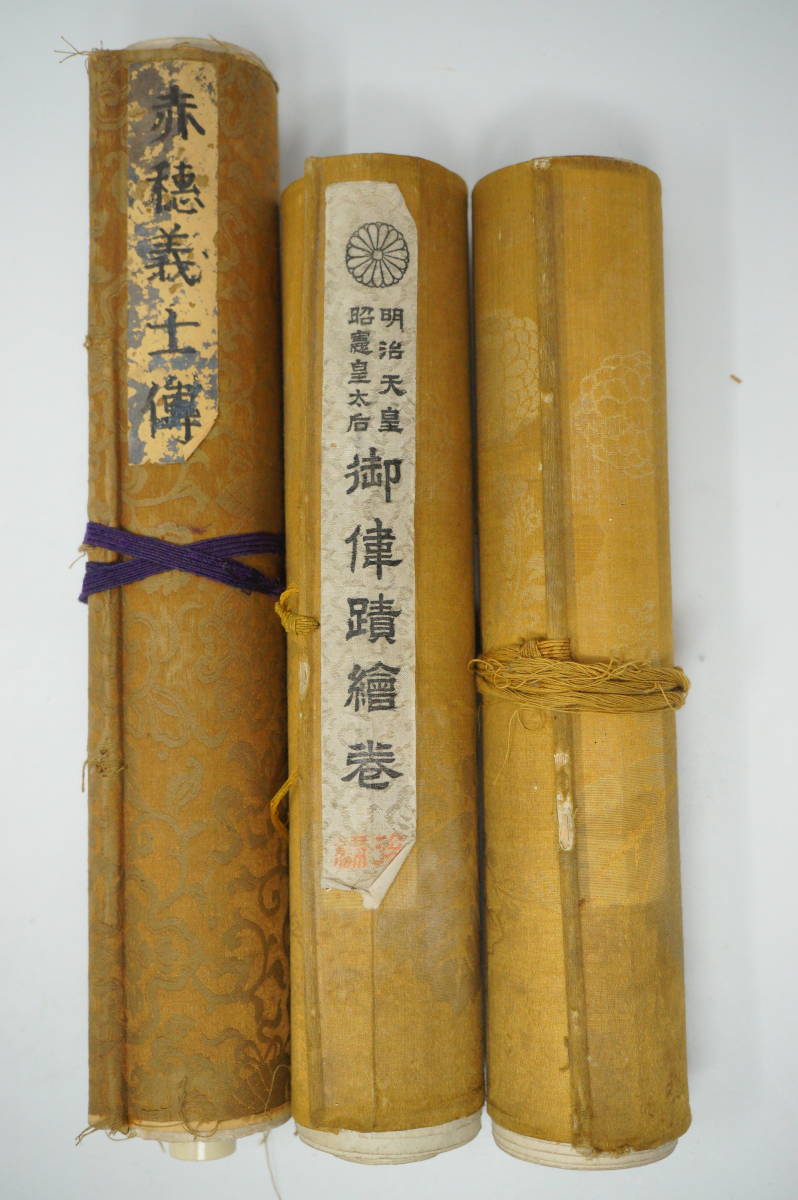 赤穗義士傳
明治天皇
昭憲皇太后
御偉蹟繪卷